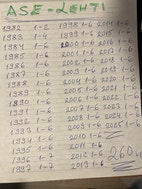 ASE-LEHTI
1982 1-2 1998 1-6 2014 1-6
1983 1-4 1999 1-6 2015 1-6
1984 1-6 2000 1-6 2016 1-6
1985 1-6 2001 1-6 2017 1-6
1986 1-6 2002 1-6 2018 1-6
1987 1-6 2003 1-6 2019 1-6
1988 1-6 2004 1-6 2020 1-6
1989 1-6 2005 1-6 2021 1-6
1990 1-6 2006 1-6 2022 1-6
1991 1-6 2007 1-6 2023 1-6
1992 1-6 2008 1-6 2024 1-6
1993 1-6 2009 1-6 2025 1-6
1994 1-6 2010 1-6
1995 1-6 2011 1-6
1996 1-7 2012 1-6 260
1997 1-7 2013 1-6